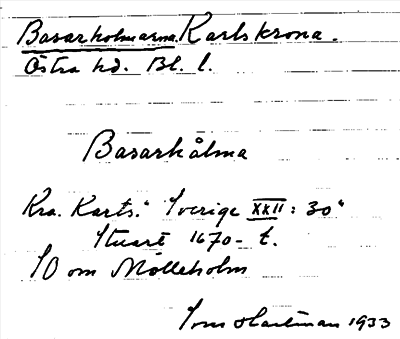 Basarholmarna. Karlskrona.
Östra hd. Bl. l.
Basarhålma
Kra. Karts. "Sverige XXII: 30"
Stuart 1670- t.
SO om Mölleholm
Hartman 1933